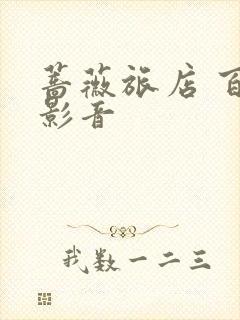 蔷薇旅店 百
影音
我数一二三